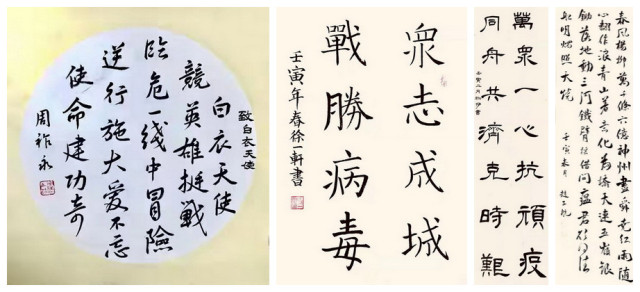 致白衣天使
白衣天使
競英雄挺戰
臨危一綫中冒險
逆行施大愛不忘
使命建功奇
周祚永
衆志成城
戰勝病毒
壬寅年春徐一軒書
萬衆一心抗頑疫
同舟共濟克時艱
春風楊柳萬千條六億神州盡舜堯紅雨隨
心翻作浪青山著意化為橋天連五嶺銀
鋤落地動三河鐵臂搖借問瘟君欲何往紙
船明燭照天燒
壬寅春月